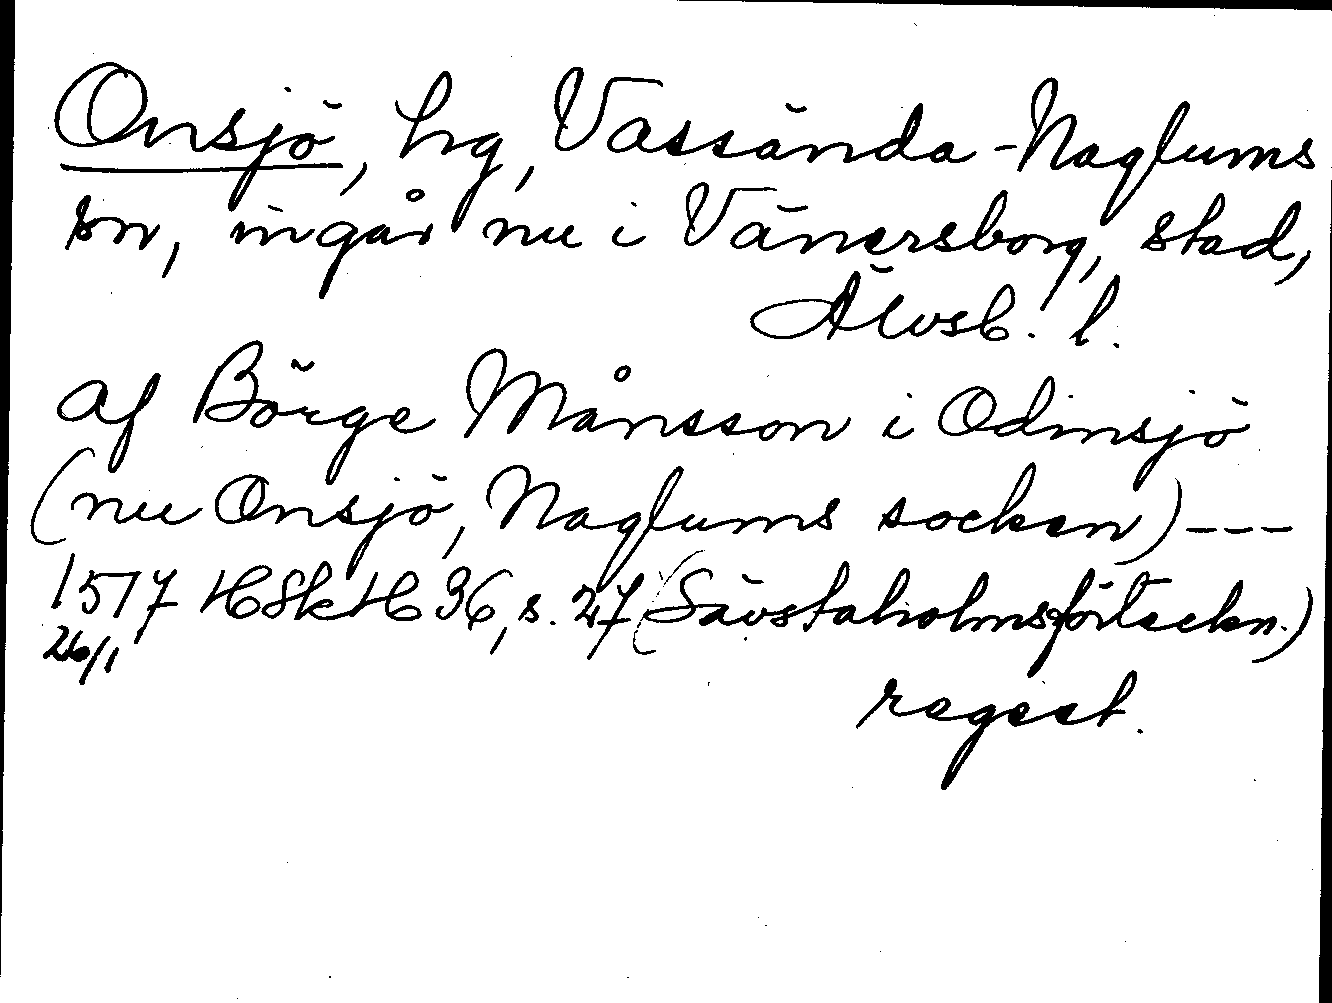 Onsjö, hg, Vassända-Naglums
sn, ingår nu i Vänersborg, stad,
Älvsb. l.
af Börge Månsson i Odinsjö
(nu Onsjö, Naglums socken) ---
1517 HSkH 36, s. 27 (Sävstaholmsförteckn.)
26/1
regest.